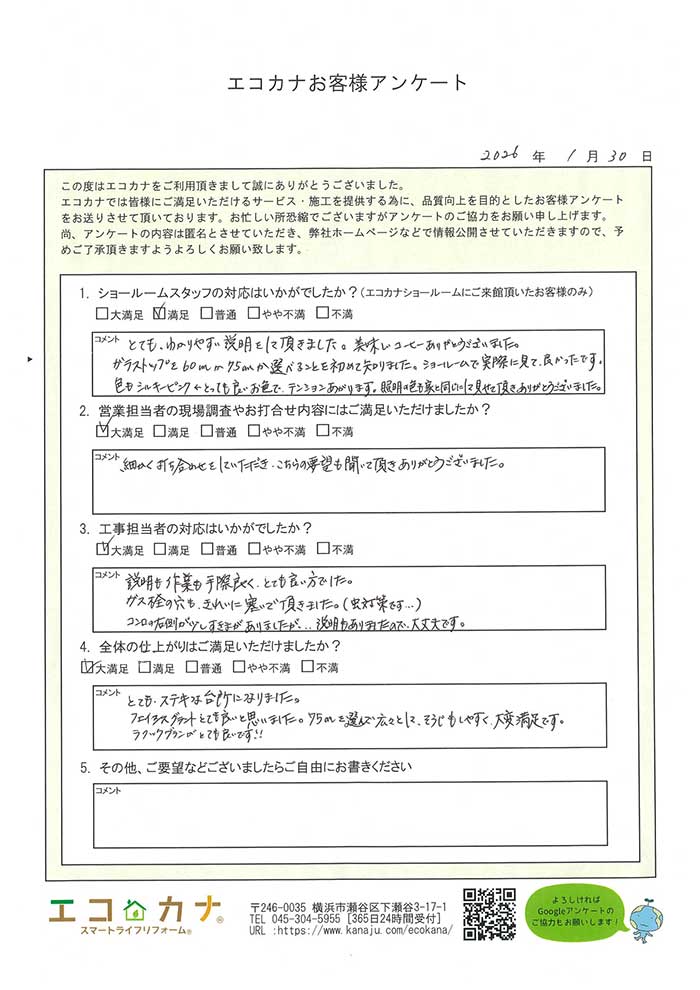 エコカナお客様アンケート
2026 年 1 月 30 日
この度はエコカナをご利用頂きまして誠にありがとうございました。
エコカナでは皆様にご満足いただけるサービス・施工を提供する為に、品質向上を目的としたお客様アンケート
をお送りさせて頂いております。お忙しい所恐縮でございますがアンケートのご協力をお願い申し上げます。
尚、アンケートの内容は匿名とさせていただき、弊社ホームページなどで情報公開させていただきますので、予
めご了承頂きますようよろしくお願い致します。
1. ショールームスタッフの対応はいかがでしたか？(エコカナショールームにご来館頂いたお客様のみ)
□大満足 ☑満足 □普通 □やや不満 □不満
コメント とても、わかりやすい説明をして頂きました。美味しいコーヒーありがとうございました。
ガラストップを60cmか75cmか選べることを初めて知りました。ショールームで実際に見て、良かったです。
色もシルキーピンク とっても良いお色で、テンションあがります。照明の色も家と同じにして見せて頂きありがとうございました。
2. 営業担当者の現場調査やお打合せ内容にはご満足いただけましたか？
☑大満足 □満足 □普通 □やや不満 □不満
コメント 細かく打ち合わせをしていただき、こちらの要望も聞いて頂きありがとうございました。
3. 工事担当者の対応はいかがでしたか？
☑大満足 □満足 □普通 □やや不満 □不満
コメント 説明も作業も手際良く、とても良い方でした。
ガス栓の穴も、きれいに塞いで頂きました。(虫対策です…)
コンロの右側が少しすきまがありましたが… 説明もありましたので、大丈夫です。
4. 全体の仕上がりはご満足いただけましたか？
☑大満足 □満足 □普通 □やや不満 □不満
コメント とても、ステキな台所になりました。
とても良いと思いました。75cmを選んで広々として、そうじもしやすく、大変満足です。
ラクックグランがとても良いです!!
5. その他、ご要望などございましたらご自由にお書きください
コメント
エコカナ®
スマートライフリフォーム®
〒246-0035 横浜市瀬谷区下瀬谷3-17-1
TEL 045-304-5955 [365日24時間受付]
URL :https://www.kanaju.com/ecokana/
よろしければ
Googleアンケートの
ご協力もお願いします！